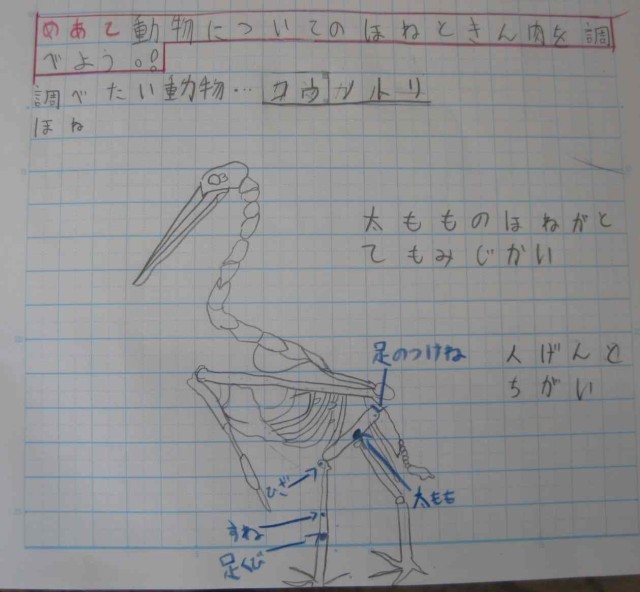 めあて動物についてのほねときん肉を調
べよう。
調べたい動物…コウノトリ
ほね
太もものほねがと
てもみじかい
足のつけね
人げんと
ちがい
ひざ
太もも
すね
足くび